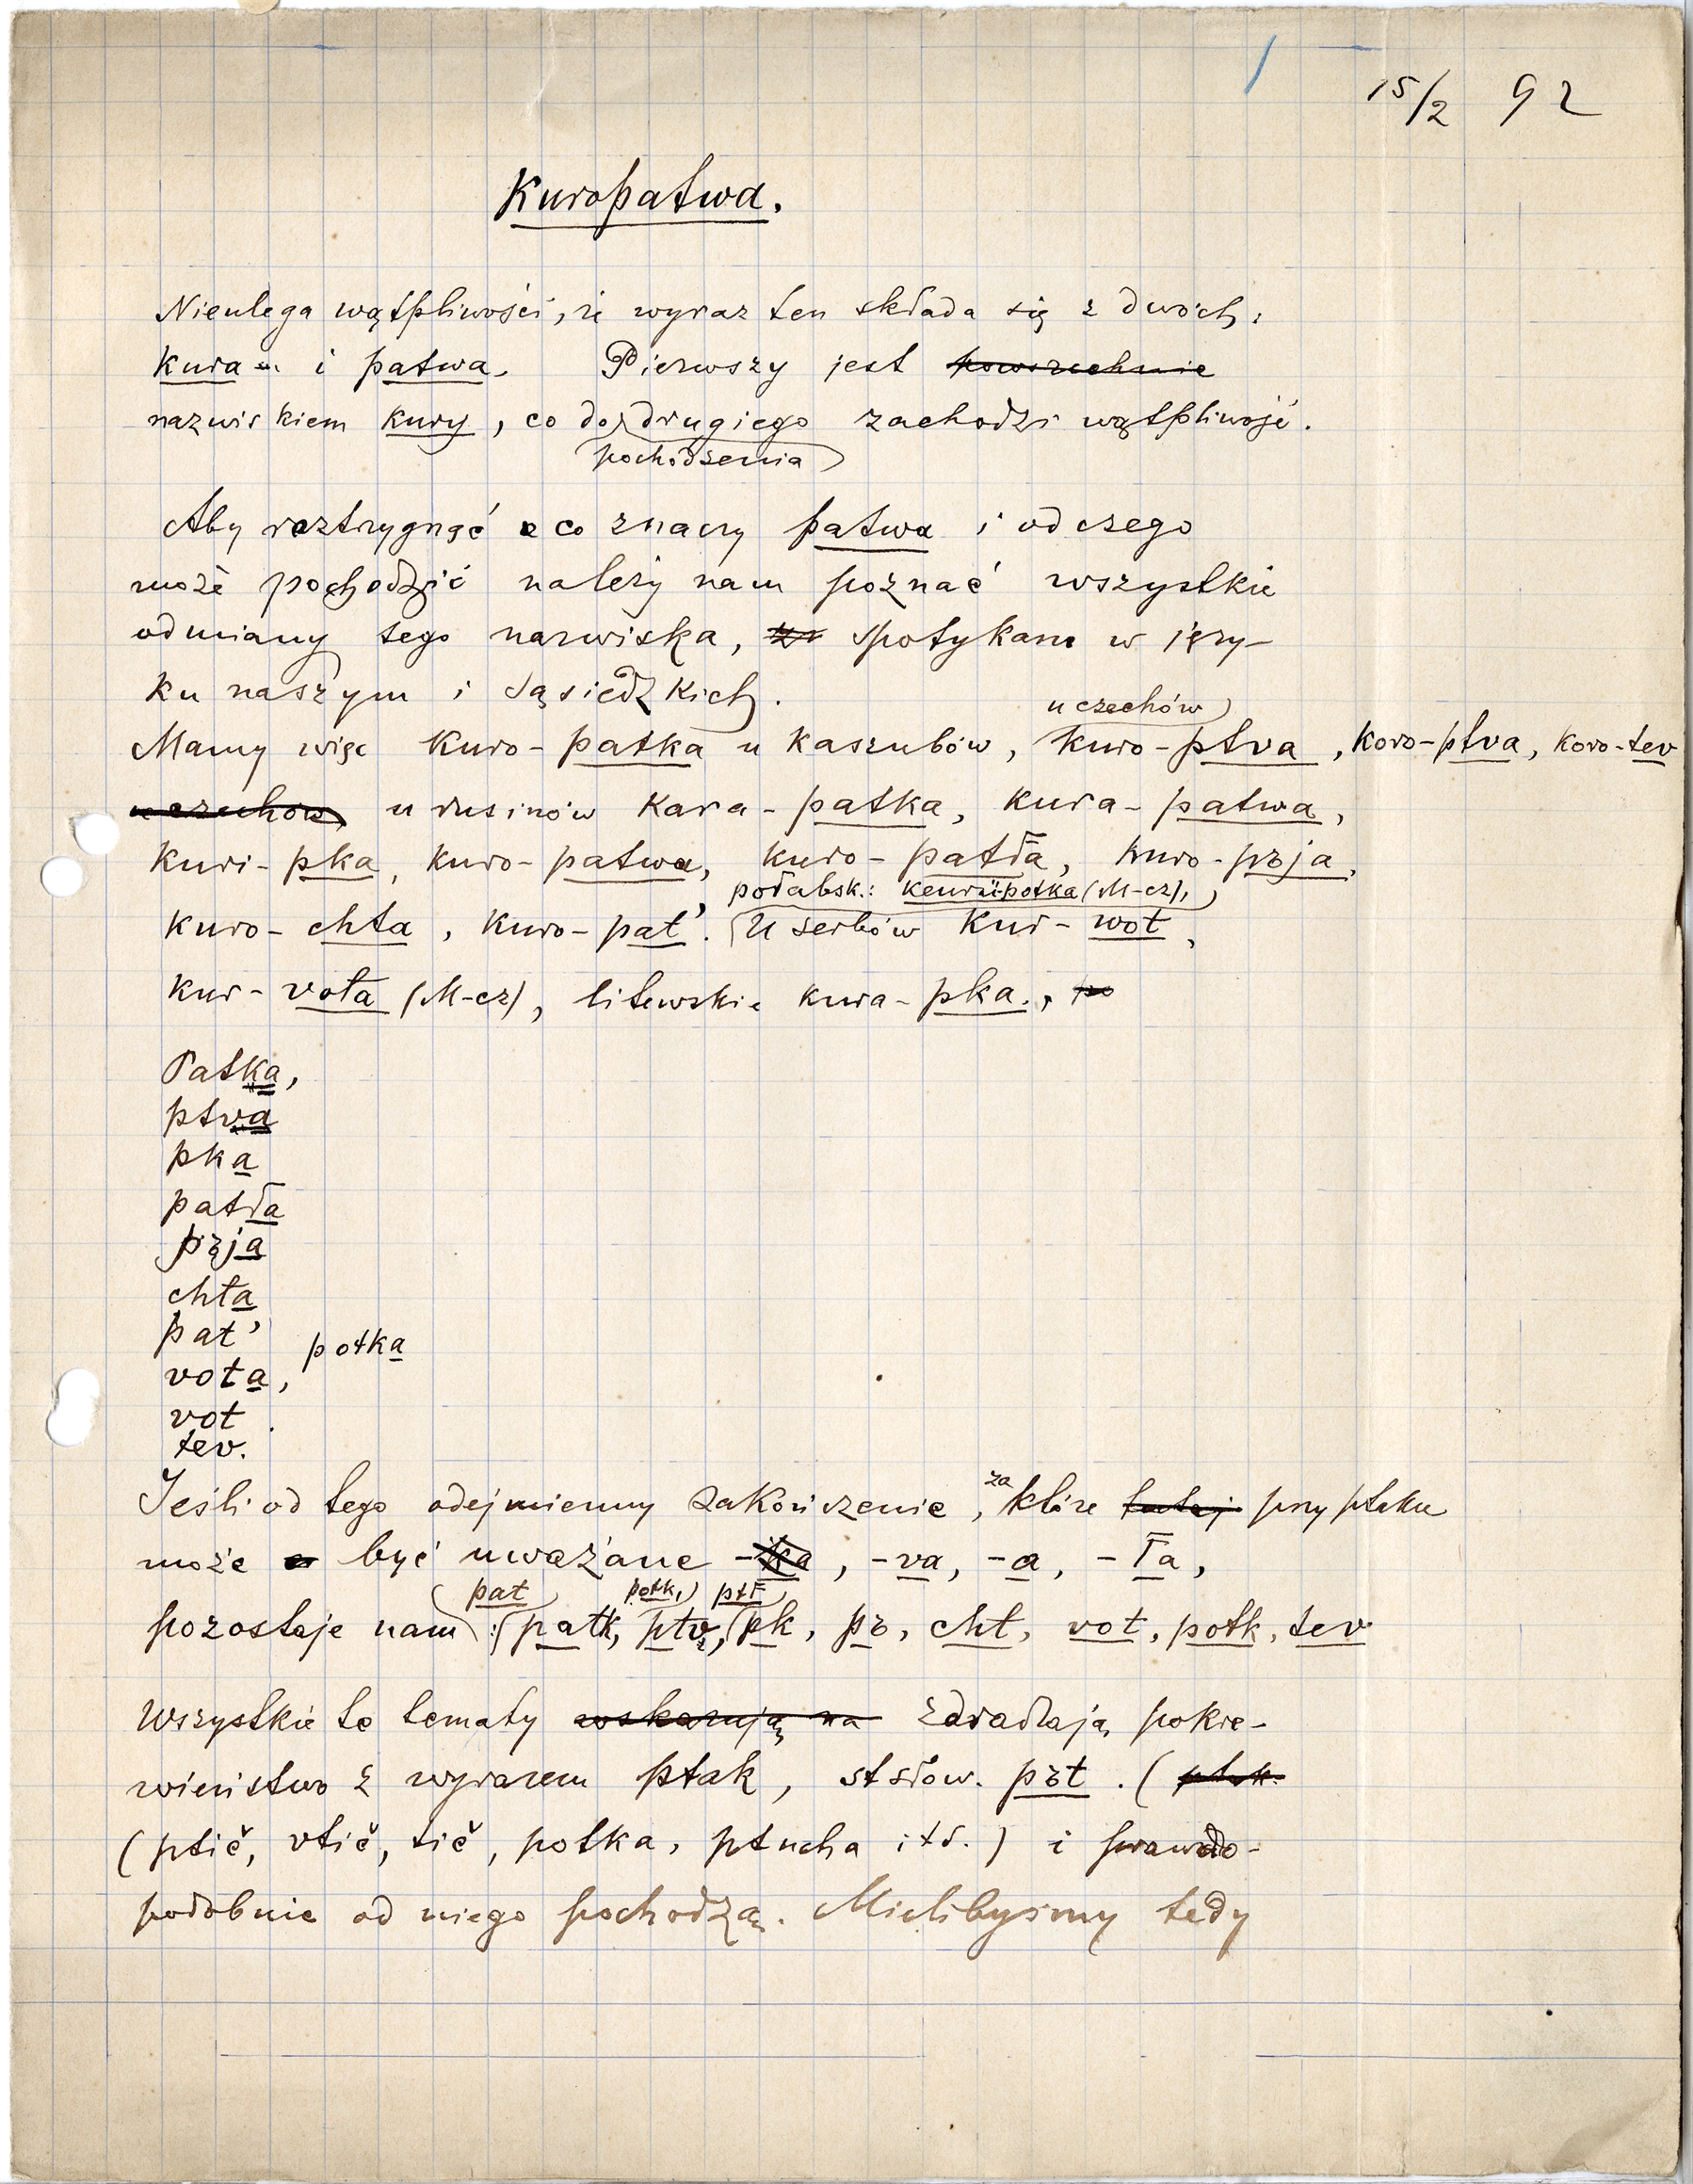 15/2 92
Kuropatwa.
Nieulega wątpliwości, że wyraz ten składa się z dwóch:
kura i patwa. Pierwszy jest powszechnie
nazwiskiem kury, co do drugiego zachodzi wątpliwość.
pochodzenia
Aby roztrzygnąć co znaczy patwa i od czego
może pochodzić należy nam poznać wszystkie
odmiany tego nazwiska, spotykane w języ-
ku naszym i sąsiedzkich.
u czechów
Mamy więc Kuro-patka u Kaszubów, kuro-ptva, koro-ptva, koro-tev
u czechów, u rusinów Kara-patka, kura-patwa,
kuri-pka, kuro-patwa, kuro-patła, kuro-pъja,
połabsk.: keuriü-potka (M-cz),
kuro-chta, kuro-pat'. U serbów kur-wot,
kur-vota (M-cz), litewskie kura-pka., po
Patka,
ptva
pka
patła
pъja
chta
pat'
potka
vota,
vot
tev.
Jeśli od tego odejmiemy zakończenie, za które tutaj przy ptaku
może być uważane -ka, -va, -a, -ła,
pat potk, ptł
pozostaje nam: patk, ptv, pk, pъ, cht, vot, potk, tev
Wszystkie te tematy wskazują na zdradzają pokre-
wieństwo z wyrazem ptak, stsłow. pъt. (ptak.
(ptič, vtič, tič, potka, ptucha itd.) i prawdo-
podobnie od niego pochodzą. Mielibyśmy tedy